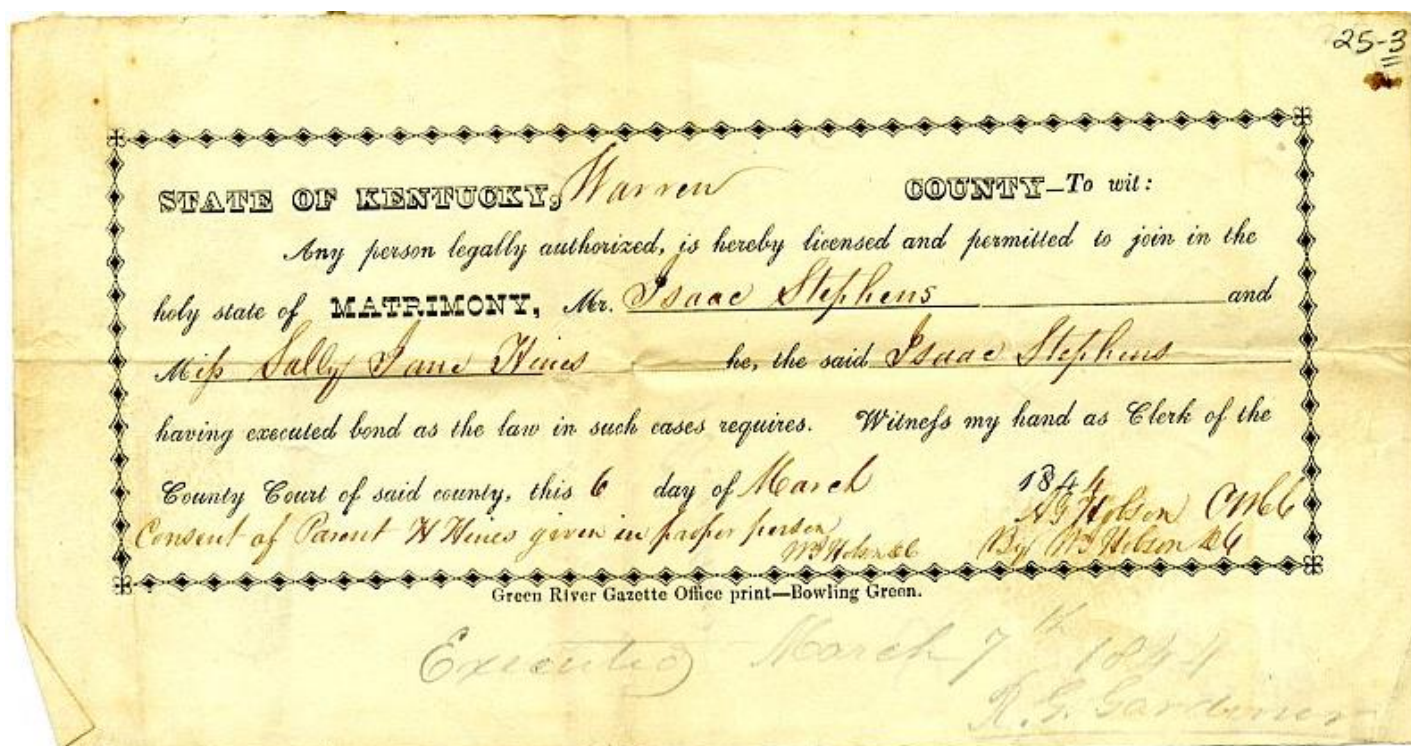 25-3
STATE OF KENTUCKY, Warren COUNTY—To wit:
Any person legally authorized, is hereby licensed and permitted to join in the
holy state of MATRIMONY, Mr. Isaac Stephens and
Miſs Sally Jane Hines he, the said Isaac Stephens
having executed bond as the law in such cases requires. Witneſs my hand as Clerk of the
County Court of said county, this 6 day of March 1844
Hobson
Consent of Parent H Hines given in proper person
Hobson By Hobson
Green River Gazette Office print—Bowling Green.
Executed March 7th 1844
R. G. Gardiner